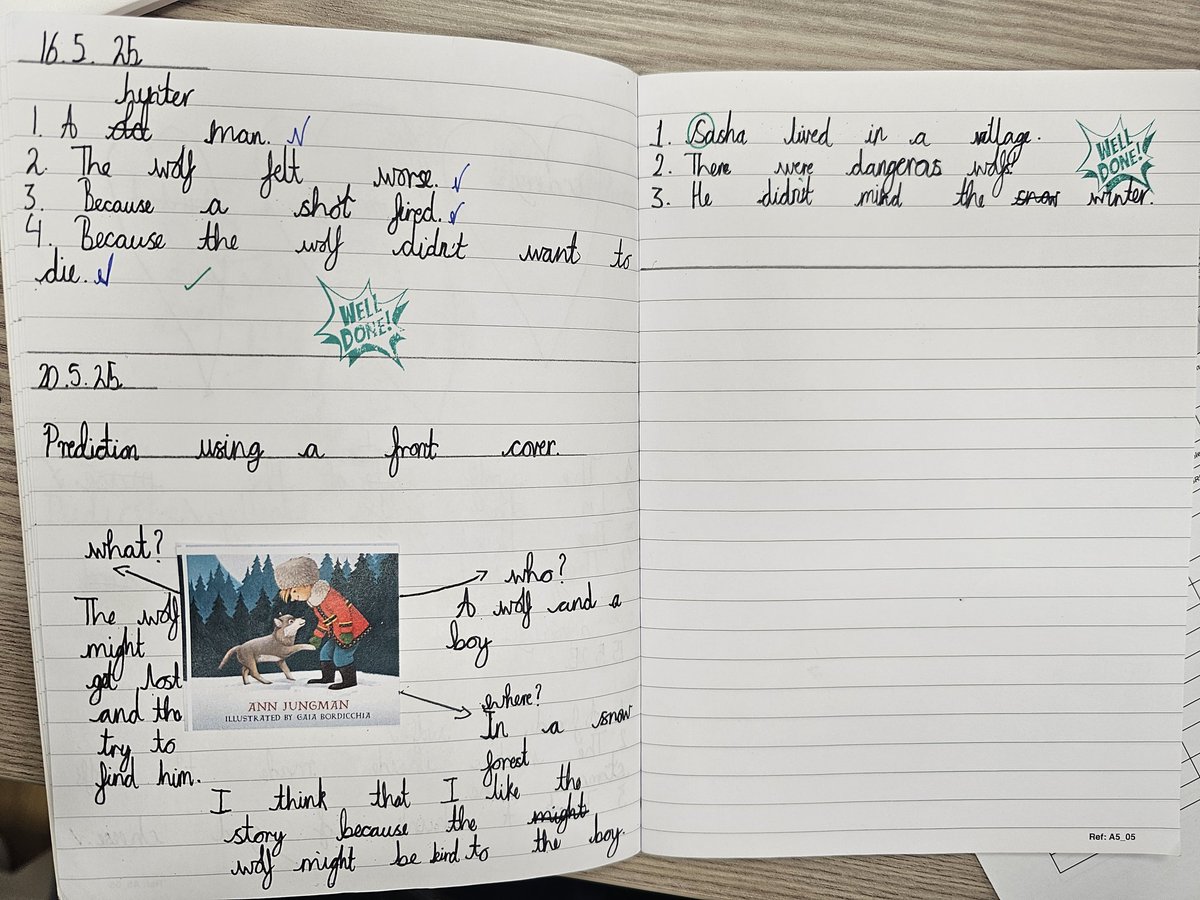 16.5.25
hunter
1. A old man.
2. The wolf felt worse.
3. Because a shot fired.
4. Because the wolf didn't want to
die.
WELL
DONE!
20.5.25
Prediction using a front cover.
what?
The wolf
might
get lost
and the
try to
find him.
ANN JUNGMAN
ILLUSTRATED BY GAIA BORDICCHIA
who?
A wolf and a
boy
where?
In a snow
forest
I think that I like the
story because the might
wolf might be kind to the boy.
1. Sasha lived in a village.
2. There were dangeras wolfs
3. He didn't mind the snow winter.
WELL
DONE!
Ref: A5_05